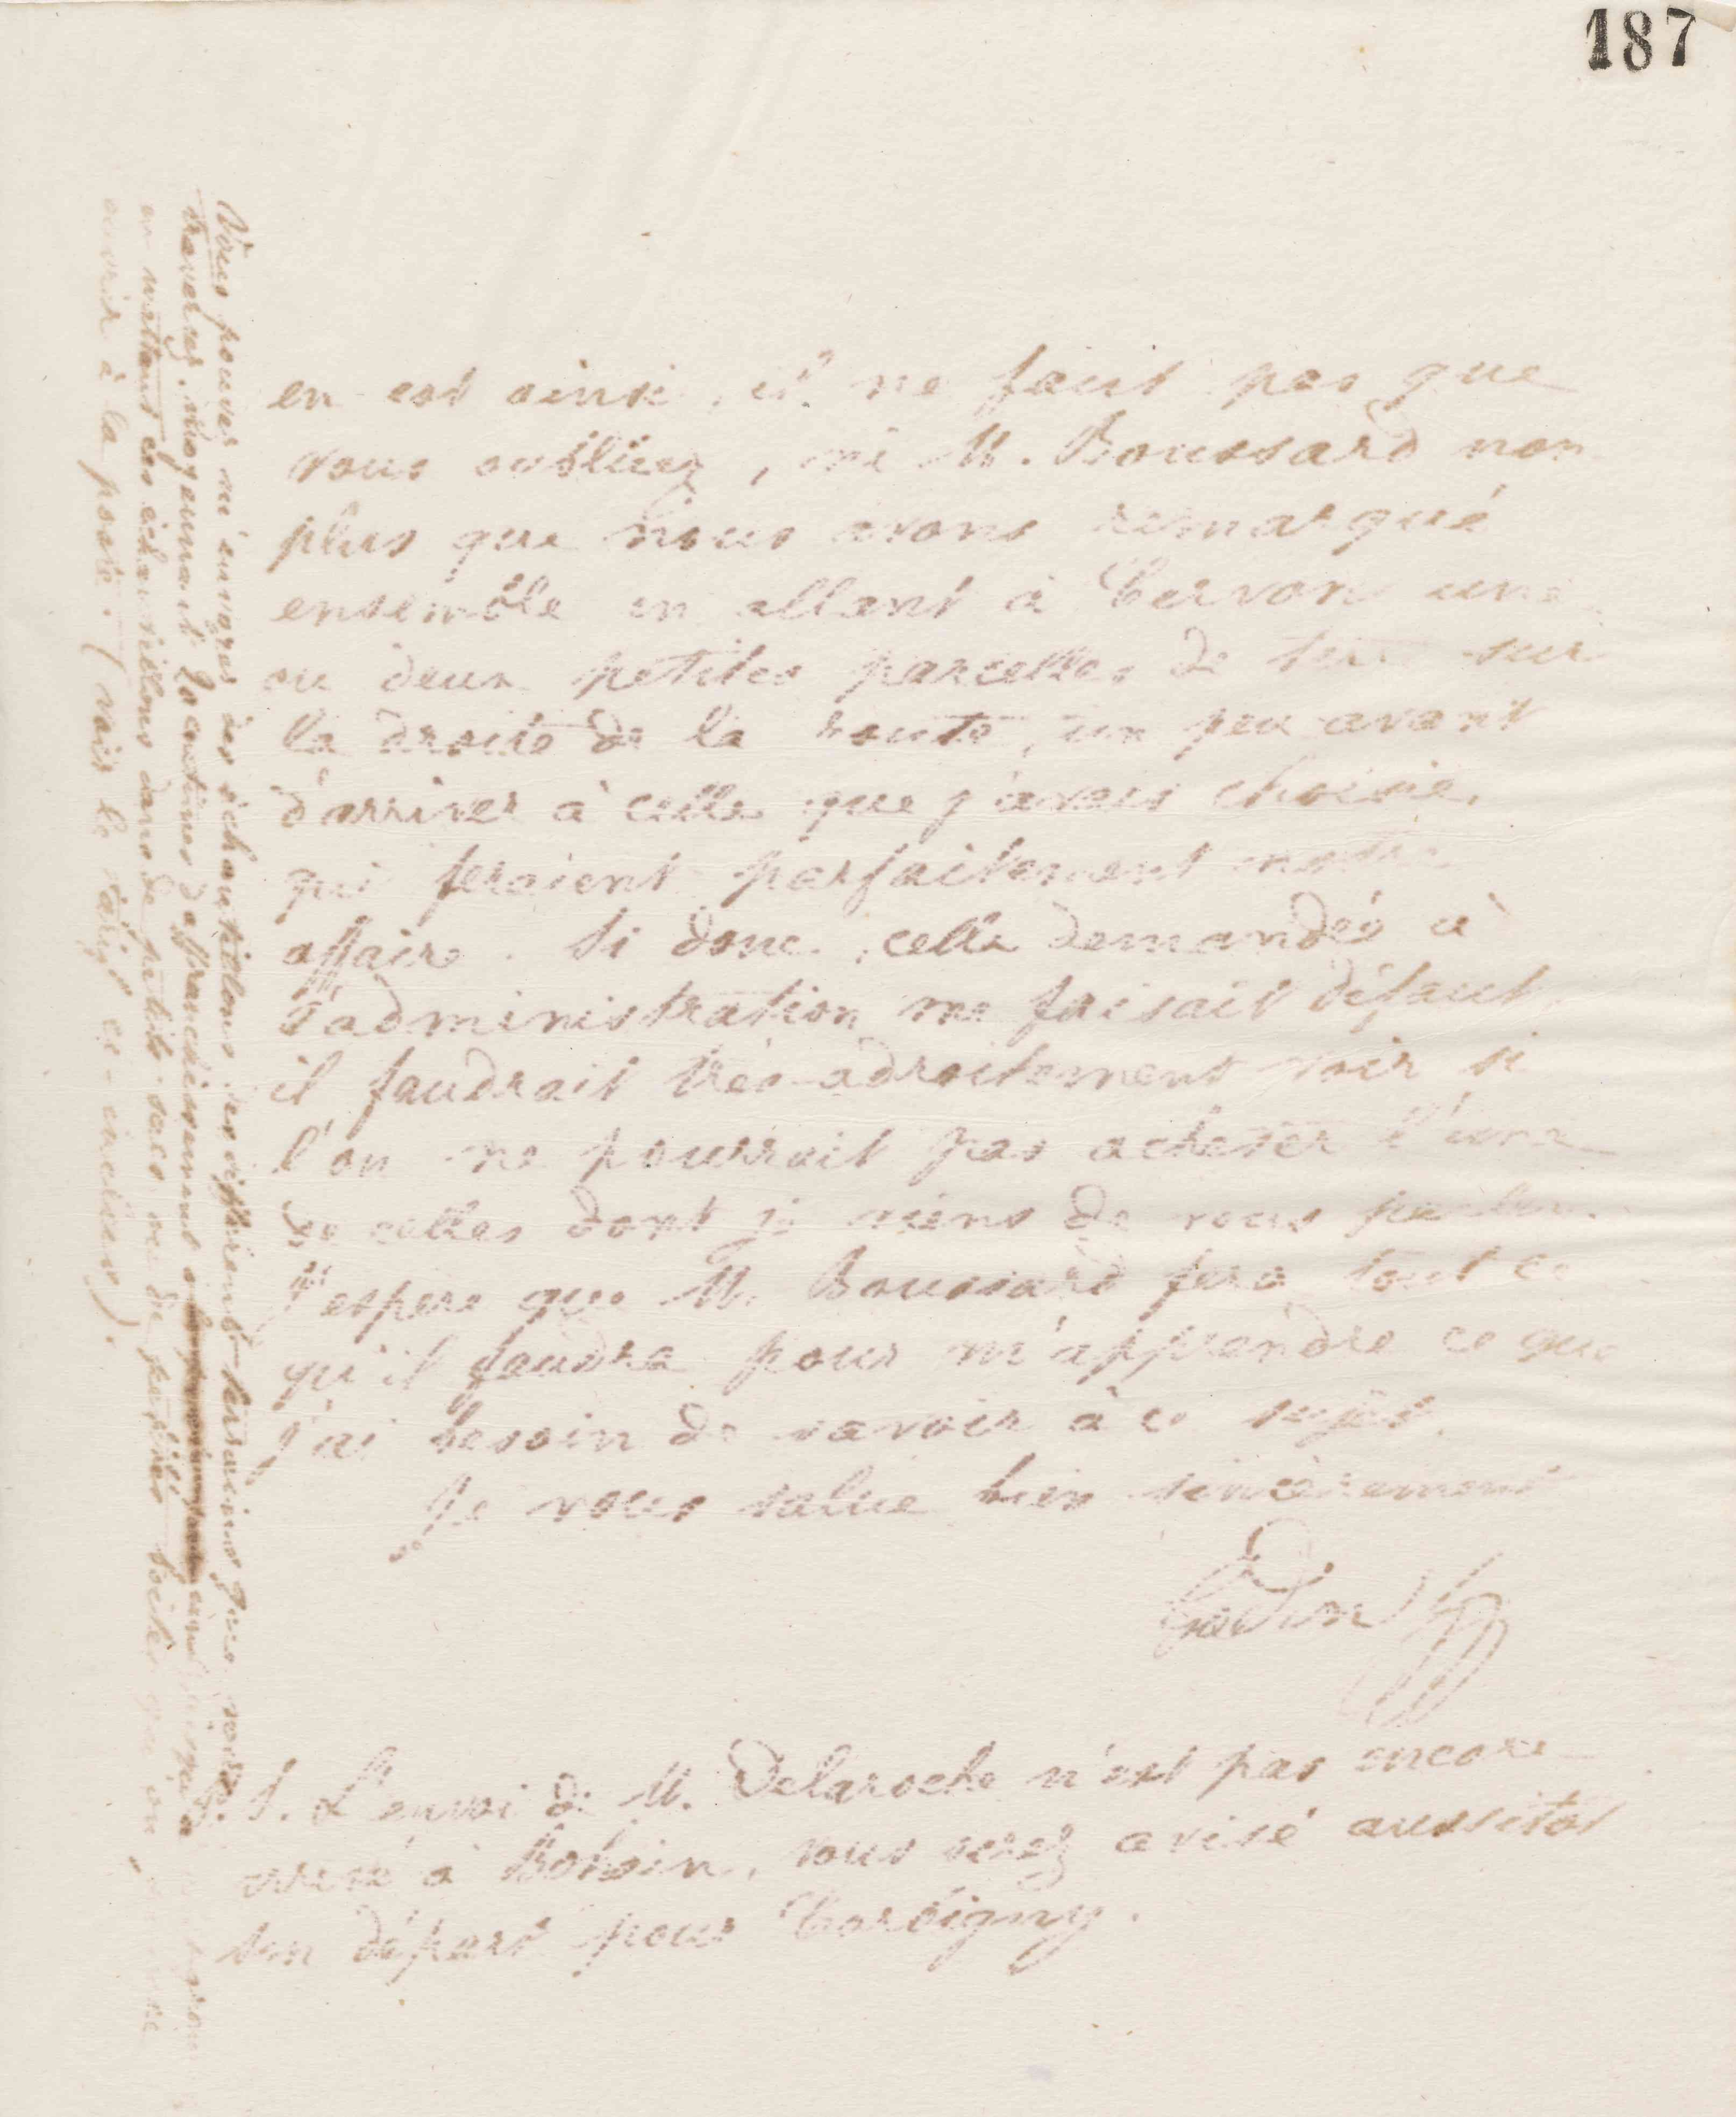 187
en est ainsi, il ne faut pas que
vous oubliiez, ni M. Boussard non
plus que nous avons remarqué
ensemble en allant à Corvon une
ou deux petites parcelles de terre sur
la droite de la route, un peu avant
d'arriver à celle que j'avais choisie,
qui feraient parfaitement notre
affaire. Si donc, celle demandée à
l'administration me faisait défaut
il faudrait très-adroitement voir si
l'on ne pourrait pas acheter l'une
de celles dont je viens de vous parler.
J'espère que M. Boussard fera tout ce
qu'il faudra pour m'apprendre ce que
j'ai besoin de savoir à ce sujet.
Je vous salue bien sincèrement
Godin
P. S. L'envoi de M. Delaroche n'est pas encore
arrivé à Bohain, vous serez avisé aussitôt
son départ pour Corbigny.
Vous pouvez m'envoyer des échantillons des différents terrains que vous
traversez, moyennant 20 centimes d'affranchissement
en mettant ces échantillons dans de petits sacs ou de petites boîtes qu'on
ouvrir à la poste. (voir le tarif ci-inclus).